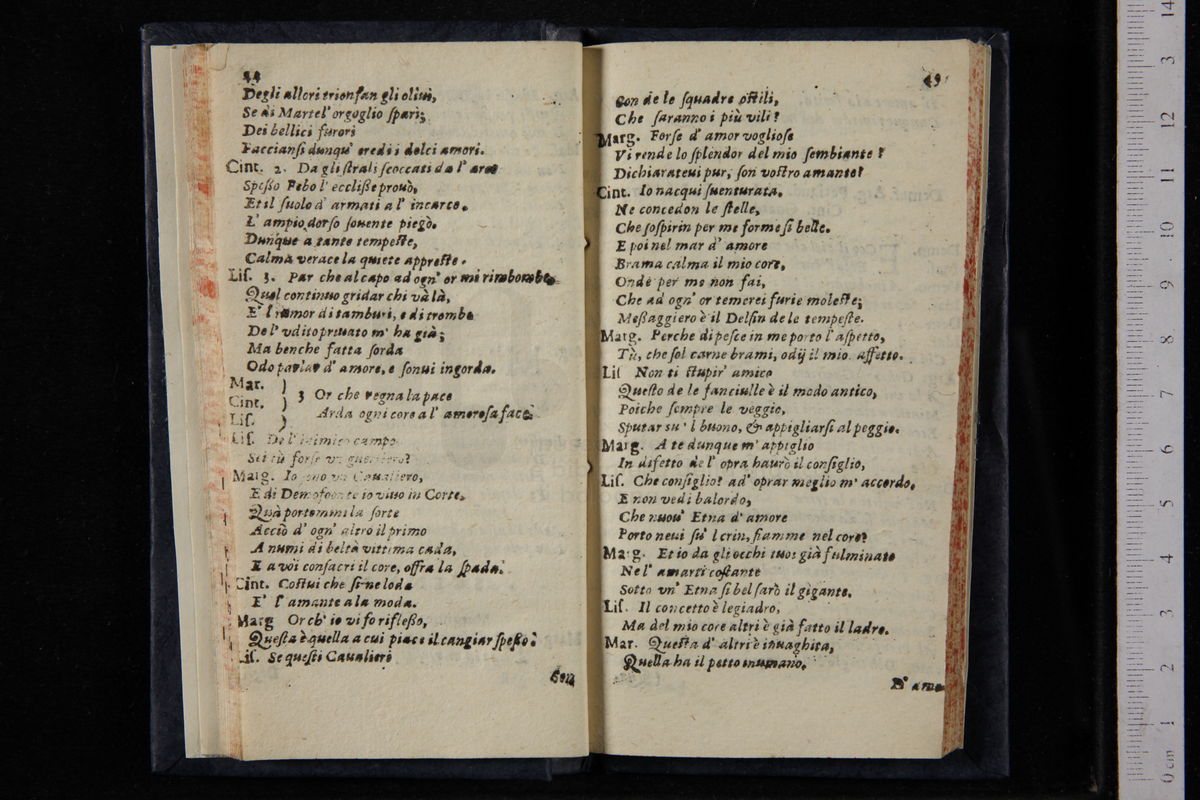 44
Degli allori trionfan gli oliui,
Se di Marte l'orgoglio sparì;
Dei bellici furori
Facciansi dunqu' eredi i dolci amori.
Cint. 2. Da gli strali scoccati da l' arco
Spesso Febo l' ecclisse prouò,
Et il suolo d' armati a l' incarco.
L' ampio dorso souente piegò.
Dunque a tante tempeste,
Calma verace la quiete appreste.
Lis. 3. Par che al capo ad ogn' or mi rimbombe
Quel continuo gridar chi và là,
E' l rumor di tamburi, e di trombe
De l' vdito priuato m' ha già;
Ma benche fatta sorda
Odo parlar d' amore, e sonui ingorda.
Mar. )
Cint. ) 3 Or che regna la pace
Lis. ) Arda ogni core a l' amorosa face.
Lis. De l' inimico campo
Sei tù forse vn guerriero?
Marg. Io sono vn Caualiero,
E di Demofoonte io viuo in Corte.
Quà portommi la sorte
Acciò d' ogn' altro il primo
A numi di beltà vittima cada,
E a voi consacri il core, offra la spada.
Cint. Costui che si ne loda
E' l' amante a la moda.
Marg Or ch' io vi fo riflesso,
Questa è quella a cui piace il cangiar spesso.
Lis. Se questi Caualieri
Con
49
Con de le squadre ostili,
Che saranno i più vili?
Marg. Forse d' amor vogliose
Vi rende lo splendor del mio sembiante?
Dichiarateui pur, son vostro amante?
Cint. Io nacqui suenturata.
Ne concedon le stelle,
Che sospirin per me forme si belle.
E poi nel mar d' amore
Brama calma il mio core,
Onde per me non fai,
Che ad ogn' or temerei furie moleste;
Messaggiero è il Delfin de le tempeste.
Marg. Perche di pesce in me porto l' aspetto,
Tù, che sol carne brami, odij il mio affetto.
Lis Non ti stupir' amico
Questo de le fanciulle è il modo antico,
Poiche sempre le veggio,
Sputar su ' l buono, & appigliarsi al peggio.
Marg. A te dunque m' appiglio
In difetto de l' opra haurò il consiglio,
Lis. Che consiglio? ad' oprar meglio m' accordo.
E non vedi balordo,
Che nuou' Etna d' amore
Porto neui su' l crin, fiamme nel core?
Marg. Et io da gli occhi tuoi già fulminato
Ne l' amarti costante
Sotto vn' Etna si bel sarò il gigante.
Lis. Il concetto è legiadro,
Ma del mio core altri è già fatto il ladro.
Mar. Questa d' altri è inuaghita,
Quella ha il petto inumano,
E' ame